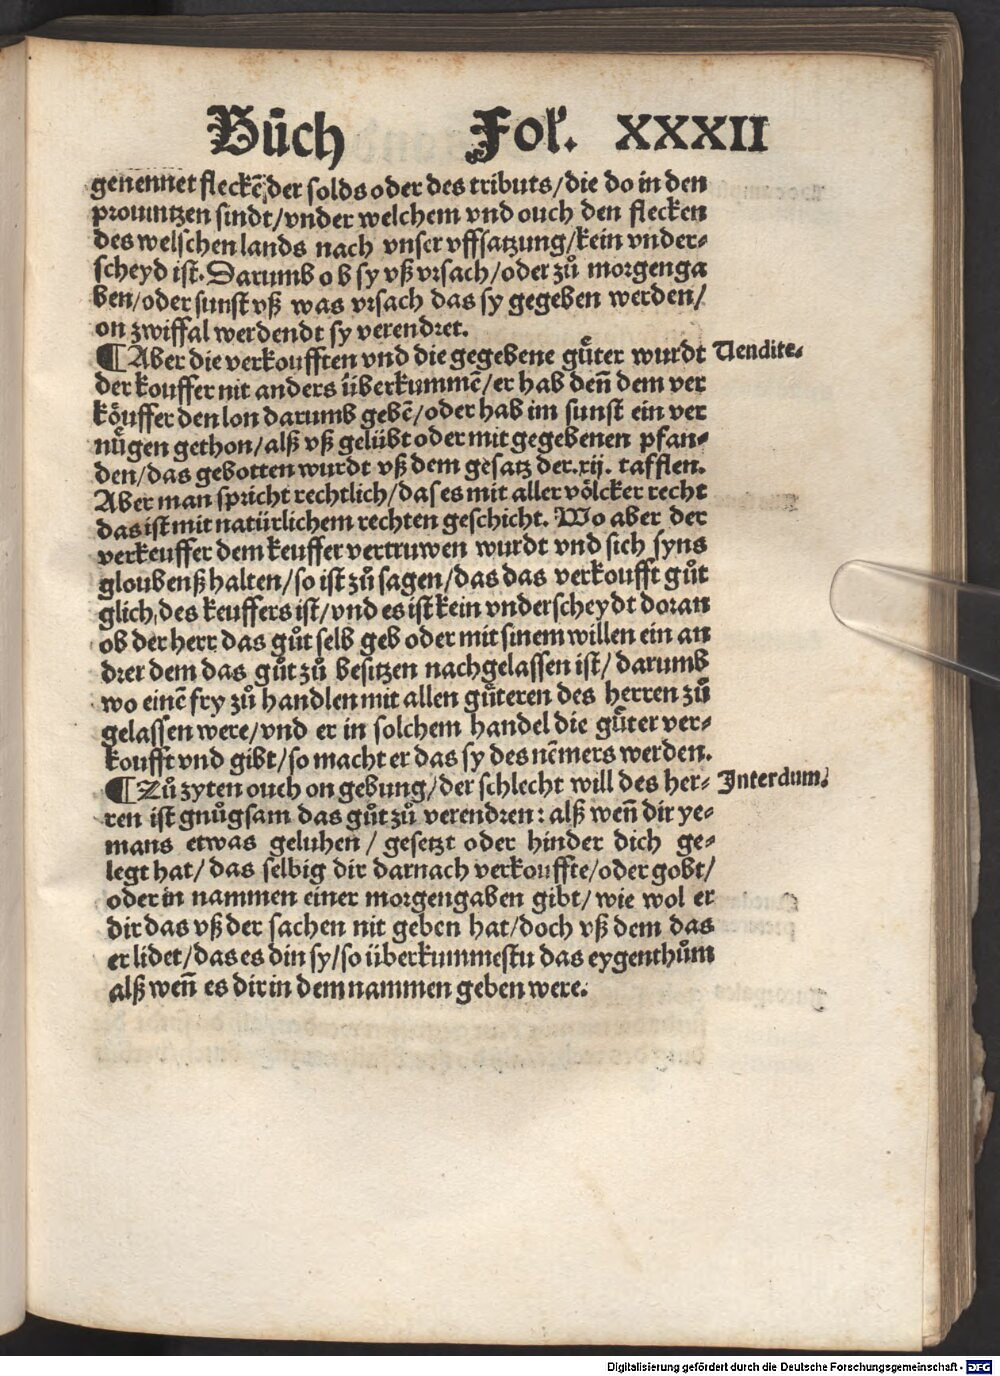 Bůch Fol. XXXII
genennet fleckē, der solds oder des tributs/die do in den
prouintzen sindt/vnder welchem vnd ouch den flecken
des welschen lands nach vnser vffsatzung/kein vnder-
scheyd ist. Darumb ob sy vß vrsach/oder zů morgenga
ben/oder sunst vß was vrsach das sy gegeben werden/
on zwiffal werdendt sy verendret.
¶ Aber die verkoufften vnd die gegebene gůter wurdt Vendite.
der kouffer nit anders überkummē/er hab deñ dem ver
köuffer den lon darumb gebē/oder hab im sunst ein ver
nůgen gethon/alß vß gelübt oder mit gegebenen pfan-
den/das gebotten wurdt vß dem gesatz der .xij. tafflen.
Aber man spricht rechtlich/das es mit aller völcker recht
das ist mit natürlichem rechten geschicht. Wo aber der
verkeuffer dem keuffer vertruwen wurdt vnd sich syns
gloubenß halten/so ist zů sagen/das das verkoufft gůt
glich, des keuffers ist/vnd es ist kein vnderscheydt doran
ob der herr das gůt selb geb oder mit sinem willen ein an
drer dem das gůt zů besitzen nachgelassen ist/ darumb
wo einē fry zů handlen mit allen gůteren des herren zů
gelassen were/vnd er in solchem handel die gůter ver-
koufft vnd gibt/so macht er das sy des nēmers werden.
¶ Zů zyten ouch on gebung/der schlecht will des her- Interdum.
ren ist gnůgsam das gůt zů verendren: alß weñ dir ye-
mans etwas geluhen/ gesetzt oder hinder dich ge-
legt hat/ das selbig dir darnach verkouffte/oder gobt/
oder in nammen einer morgengaben gibt/ wie wol er
dir das vß der sachen nit geben hat/doch vß dem das
er lidet/das es din sy/so überkummestu das eygenthům
alß weñ es dir in dem nammen geben were.
Digitalisierung gefördert durch die Deutsche Forschungsgemeinschaft - DFG